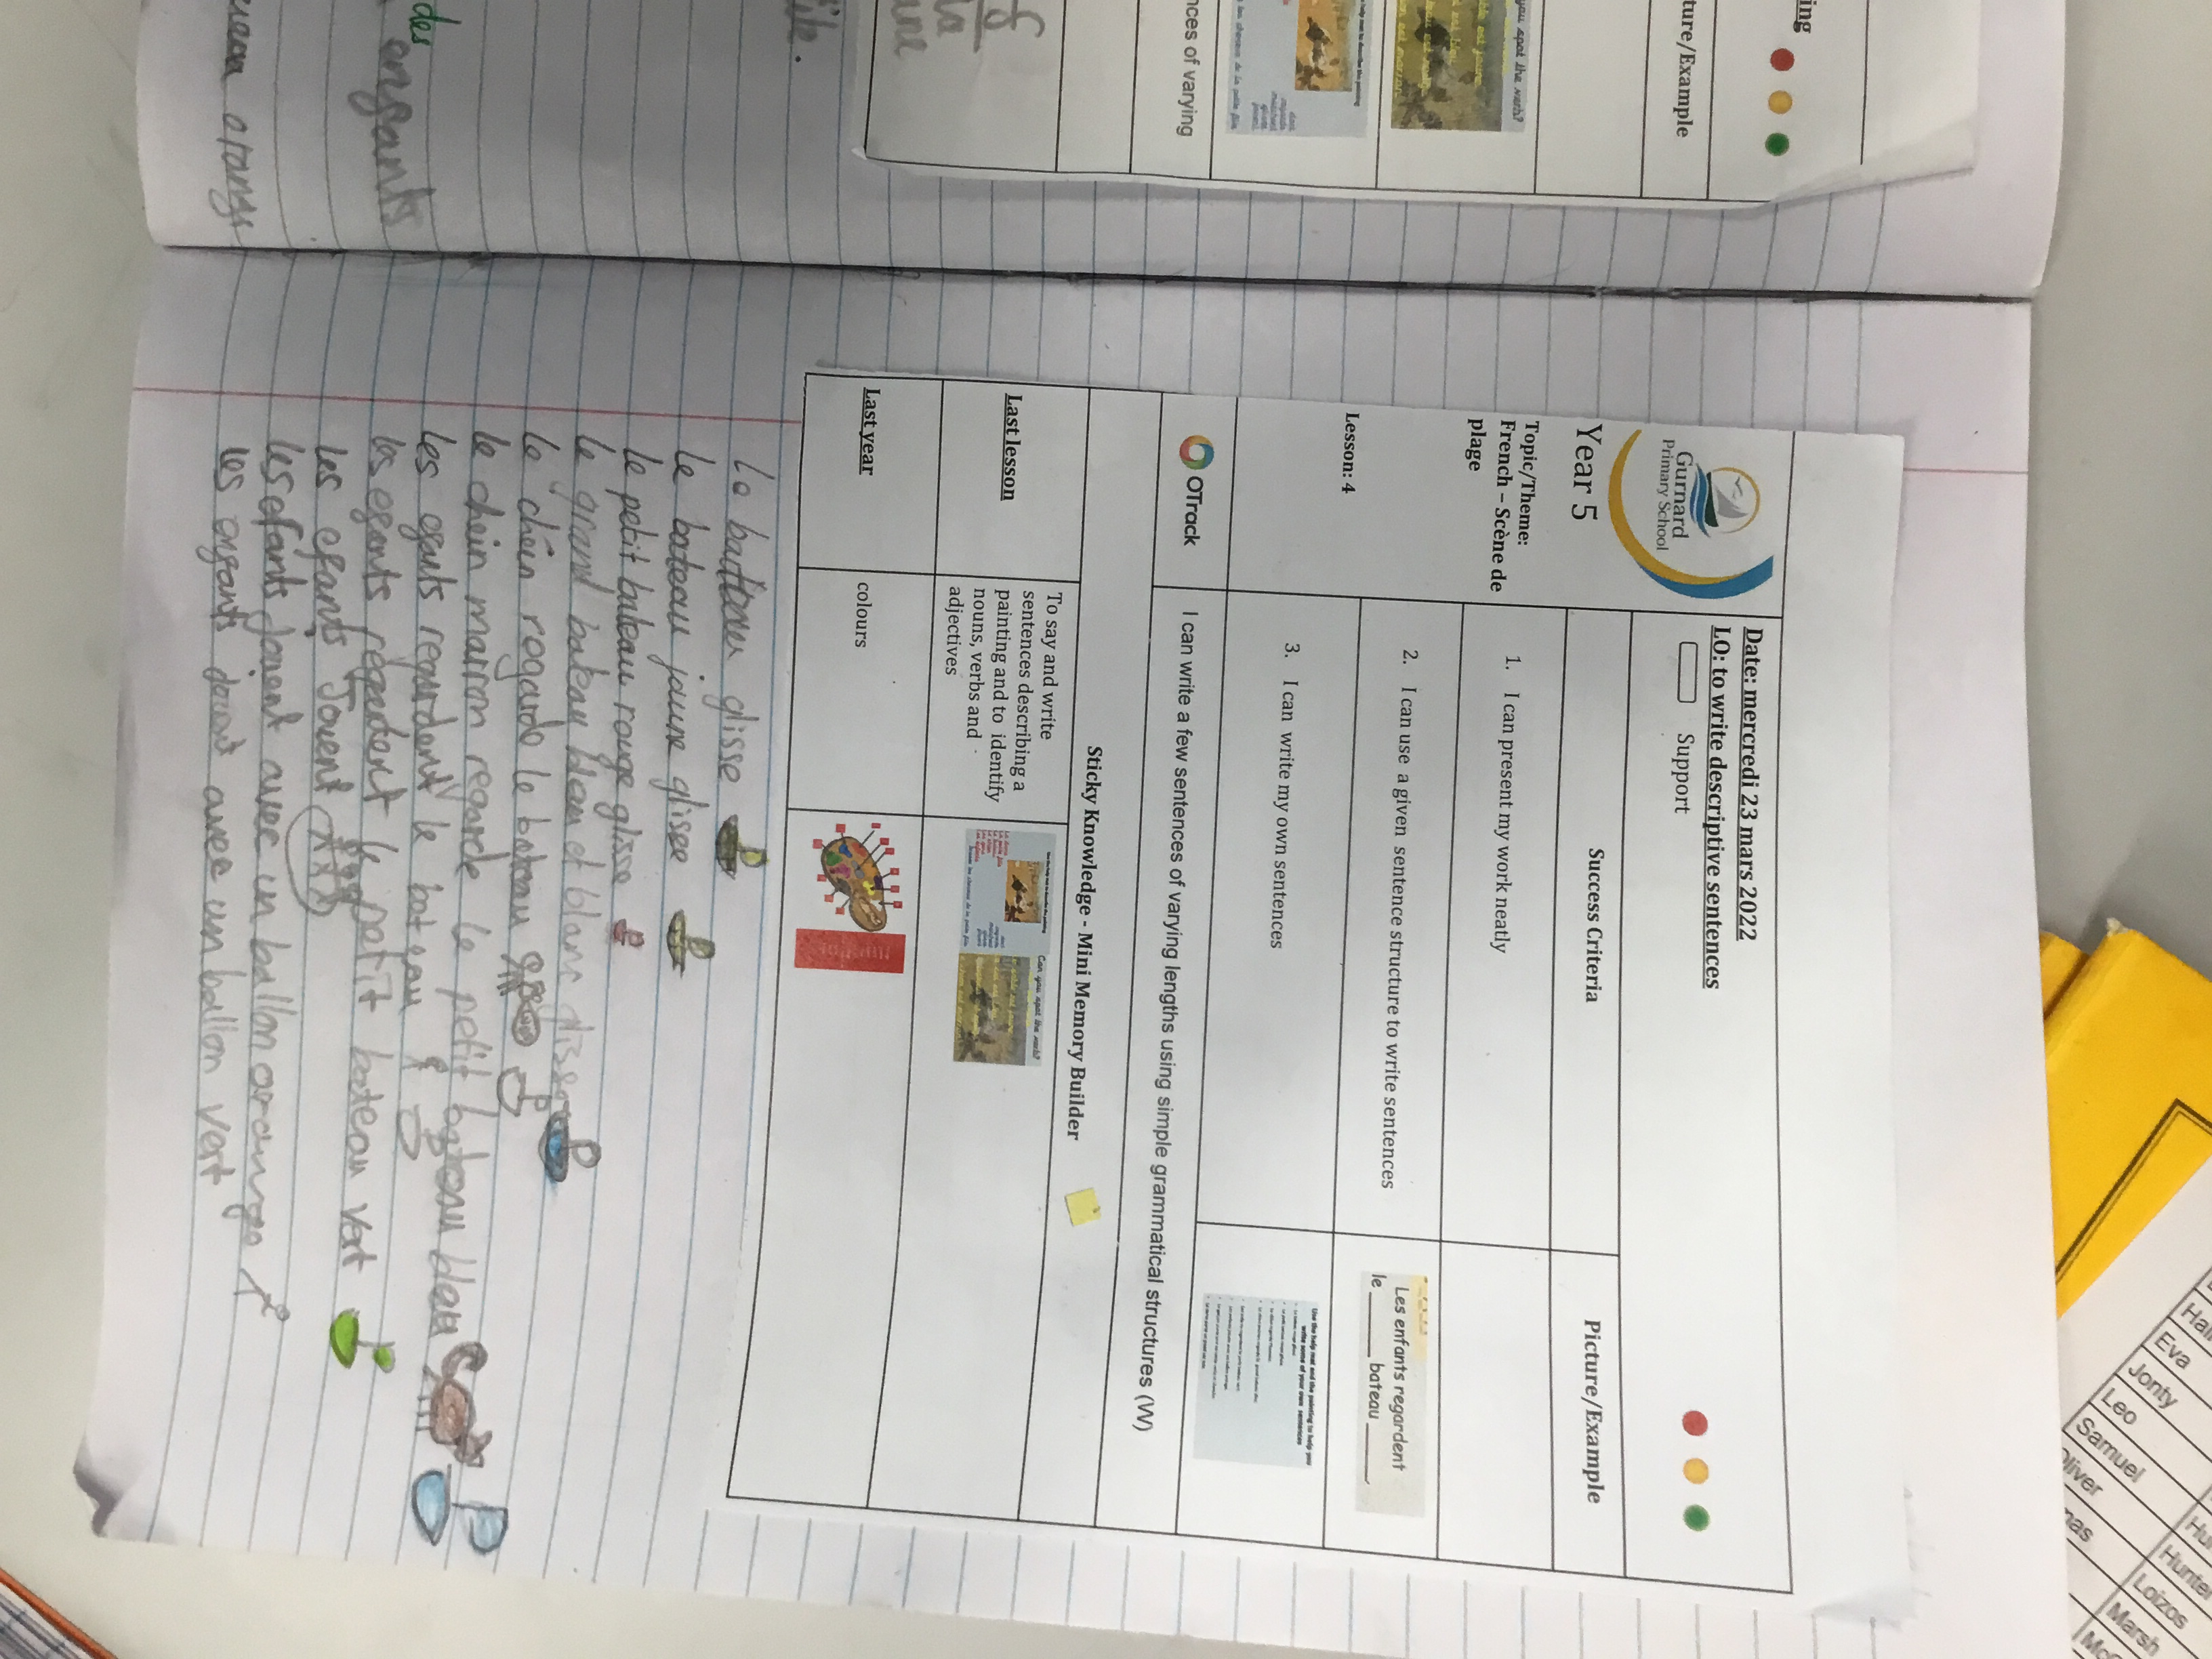 des
ing
ture/Example
nces of varying
la
une
Gurnard
Primary School
Year 5
Topic/Theme:
French – Scène de
plage
Lesson: 4
Date: mercredi 23 mars 2022
LO: to write descriptive sentences
Support
Success Criteria
Picture/Example
1. I can present my work neatly
2. I can use a given sentence structure to write sentences
Les enfants regardent
le ____ bateau ____.
3. I can write my own sentences
OTrack
I can write a few sentences of varying lengths using simple grammatical structures (W)
Sticky Knowledge - Mini Memory Builder
Last lesson
To say and write
sentences describing a
painting and to identify
nouns, verbs and
adjectives
Can you spot the verb?
Last year
colours
glisse
Le bateau jaune glisee
le petit bateau rouge glisse
le grand bateau bleu et blanc glisse
le chein regarde le bateau
le chein marron regarde le petit bateau bleu
les egants regardent le bateau
les egants regardent le petit bateau vert
les egants Jouent
les efants jouent avec un ballon orange
les engants jouent avec un ballon vert
Eva
Jonty
Leo
Samuel
Oliver
Hunter
Loizos
Marsh